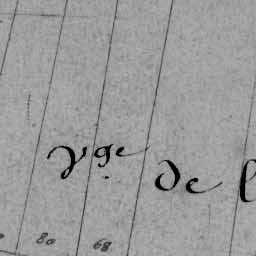 Vge de l
80 68